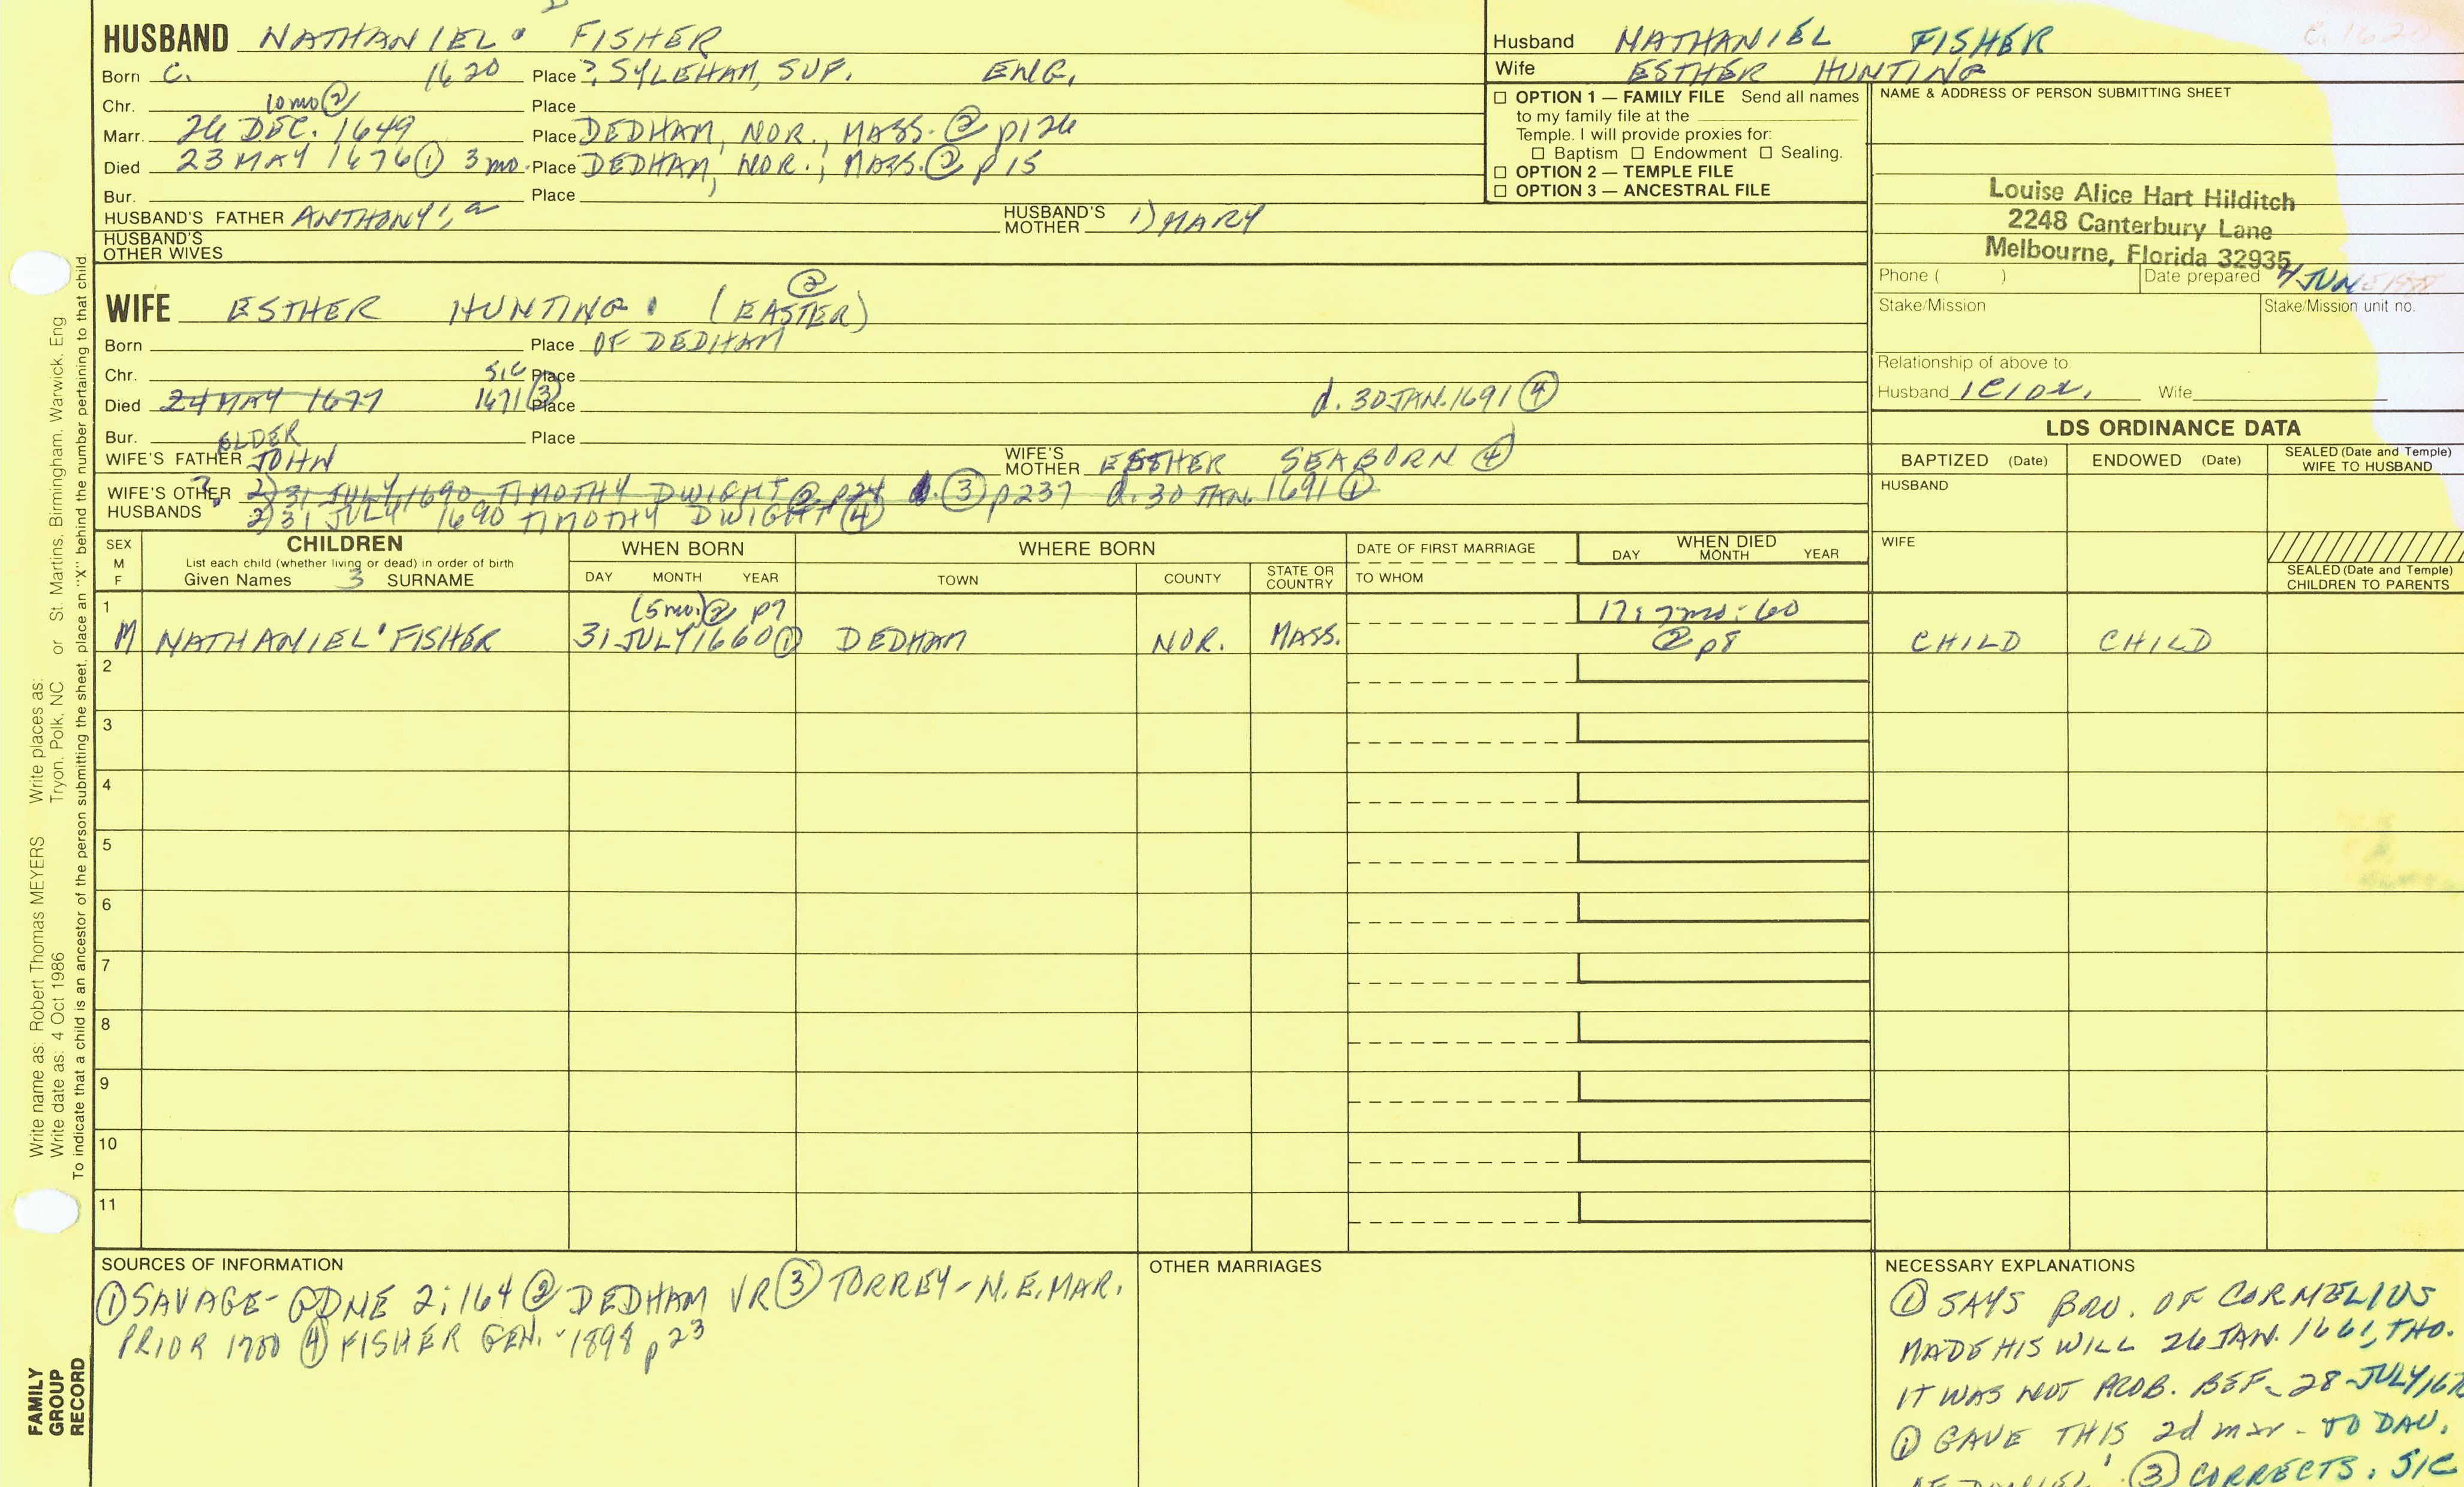 HUSBAND NATHANIEL² FISHER
Born C. 1620 Place ?, SYLEHAM, SUF. ENG.
Chr. 10 mo ② Place
Marr. 26 DEC. 1649 Place DEDHAM, NOR., MASS. ② p126
Died 23 MAY 1676 ① 3 mo. Place DEDHAM, NOR., MASS. ② p15
Bur. Place
HUSBAND'S FATHER ANTHONY¹, HUSBAND'S MOTHER 1) MARY
HUSBAND'S OTHER WIVES
Husband NATHANIEL FISHER
Wife ESTHER HUNTING
C. 1620
☐ OPTION 1 — FAMILY FILE Send all names
to my family file at the
Temple. I will provide proxies for:
☐ Baptism ☐ Endowment ☐ Sealing.
☐ OPTION 2 — TEMPLE FILE
☐ OPTION 3 — ANCESTRAL FILE
NAME & ADDRESS OF PERSON SUBMITTING SHEET
Louise Alice Hart Hilditch
2248 Canterbury Lane
Melbourne, Florida 32935
Phone ( ) Date prepared 4 JUNE
Stake/Mission Stake/Mission unit no.
Relationship of above to
Husband 1C10x. Wife
②
WIFE ESTHER HUNTING (EASTER)
Born Place OF DEDHAM
Chr. SIC Place
Died 24 MAY 1677 1671 ③ Place d. 30 JAN. 1691 ④
Bur. Place
WIFE'S FATHER ELDER JOHN WIFE'S MOTHER ESTHER SEABORN ④
WIFE'S OTHER HUSBANDS ? 2) 31 JULY 1690 TIMOTHY DWIGHT ② p24 ③ p237 d. 30 JAN. 1691 ①
2) 31 JULY 1690 TIMOTHY DWIGHT ④
LDS ORDINANCE DATA
BAPTIZED (Date) ENDOWED (Date) SEALED (Date and Temple) WIFE TO HUSBAND
HUSBAND
WIFE
SEALED (Date and Temple) CHILDREN TO PARENTS
SEX M F
CHILDREN
List each child (whether living or dead) in order of birth
Given Names 3 SURNAME
WHEN BORN
DAY MONTH YEAR
WHERE BORN
TOWN COUNTY STATE OR COUNTRY
DATE OF FIRST MARRIAGE
TO WHOM
WHEN DIED
DAY MONTH YEAR
1 (5 mo.) ② p7 17: 7 mo: 60
M NATHANIEL³ FISHER 31 JULY 1660 ① DEDHAM NOR. MASS. ② p8 CHILD CHILD
2
3
4
5
6
7
8
9
10
11
SOURCES OF INFORMATION
① SAVAGE - GDNE 2:164 ② DEDHAM VR ③ TORREY - N.E. MAR.
PRIOR 1700 ④ FISHER GEN. - 1898 p23
OTHER MARRIAGES
NECESSARY EXPLANATIONS
① SAYS BRO. OF CORNELIUS
MADE HIS WILL 26 JAN. 1661, THO.
IT WAS NOT PROB. BEF. 28 JULY 167
① GAVE THIS 2d mar - TO DAU.
OF DANIEL¹. ③ CORRECTS. SIC
Write name as: Robert Thomas MEYERS Write places as: St. Martins, Birmingham, Warwick, Eng
Write date as: 4 Oct 1986 Tryon, Polk, NC or
To indicate that a child is an ancestor of the person submitting the sheet, place an "X" behind the number pertaining to that child.
FAMILY GROUP RECORD